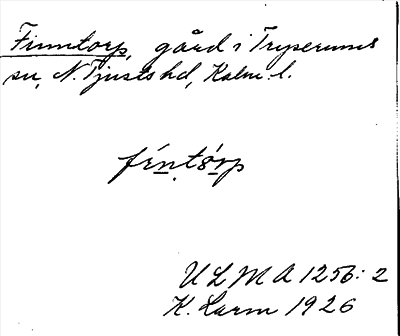 Finntorp, gård i Tryserums
sn, N. Tjusts hd, Kalm. l.
fíntórp
ULMA 1256:2
K. Larm 1926